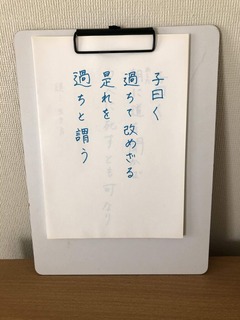 子曰く
過ちて改めざる
是れを
過ちと謂う